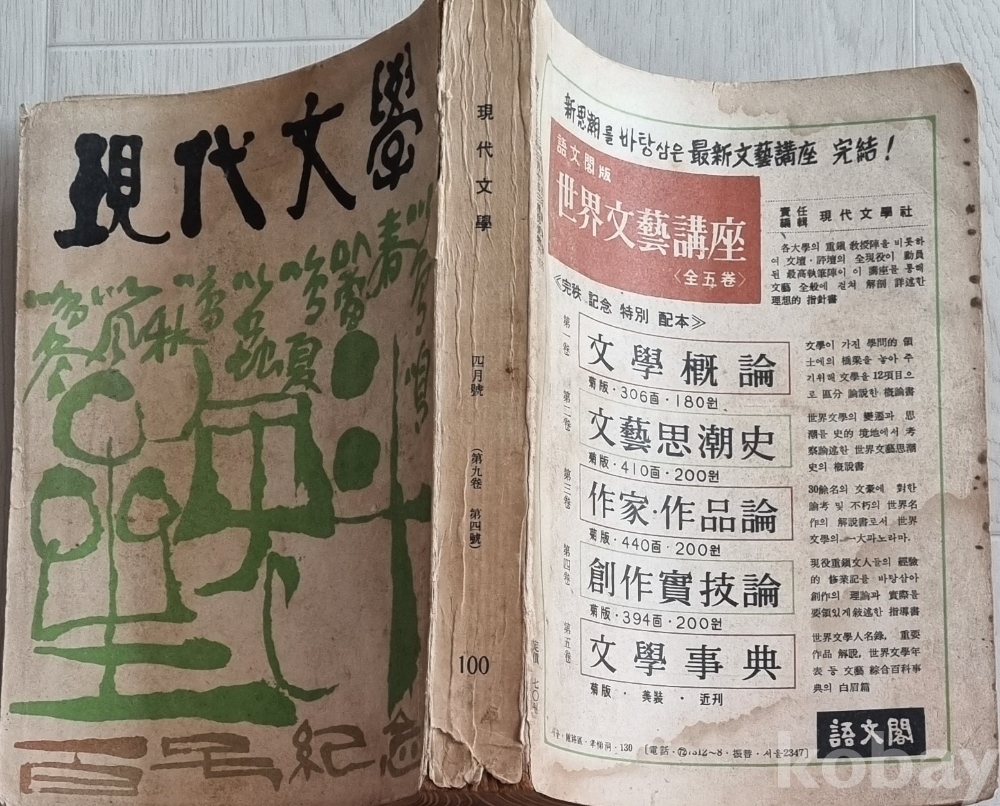 現代文學
春
以鳥鳴
夏
以蟲
秋
以風
冬
百号紀念
現代文學
四月號
(第九卷 第四號)
100
新思潮를 바탕삼은 最新文藝講座 完結!
語文閣版
世界文藝講座
〈全五卷〉
責任編輯 現代文學社
各大學의 重鎭 敎授陣을 비롯하
여 文壇·評壇의 全現役이 動員
된 最高執筆陣이 이 講座를 통해
文藝 全般에 걸쳐 解剖 詳述한
理想的 指針書
≪完秩 記念 特別 配本≫
第一卷
文學槪論
菊版·306面·180원
文學이 가진 學問的 領
土에의 橋梁을 놓아 주
기위해 文學을 12項目으
로 區分 論說한 槪論書
第二卷
文藝思潮史
菊版·410面·200원
世界文學의 變遷과 思
潮를 史的 境地에서 考
察論述한 世界文藝思潮
史의 槪說書
第三卷
作家·作品論
菊版·440面·200원
30餘名의 文豪에 對한
論考 및 不朽의 世界名
作의 解說書로서 世界
文學의 一大파노라마.
第四卷
創作實技論
菊版·394面·200원
現役重鎭文人들의 經驗
的 修業記를 바탕삼아
創作의 理論과 實際를
要領있게敍述한 指導書
第五卷
文學事典
菊版·美裝·近刊
世界文學人名錄, 重要
作品 解說, 世界文學年
表 等 文藝 綜合百科事
典의 白眉篇
語文閣
定價 七〇원
서울·鍾路區·130 [電話·⑫7312~8·振替·서울2347]
kobay